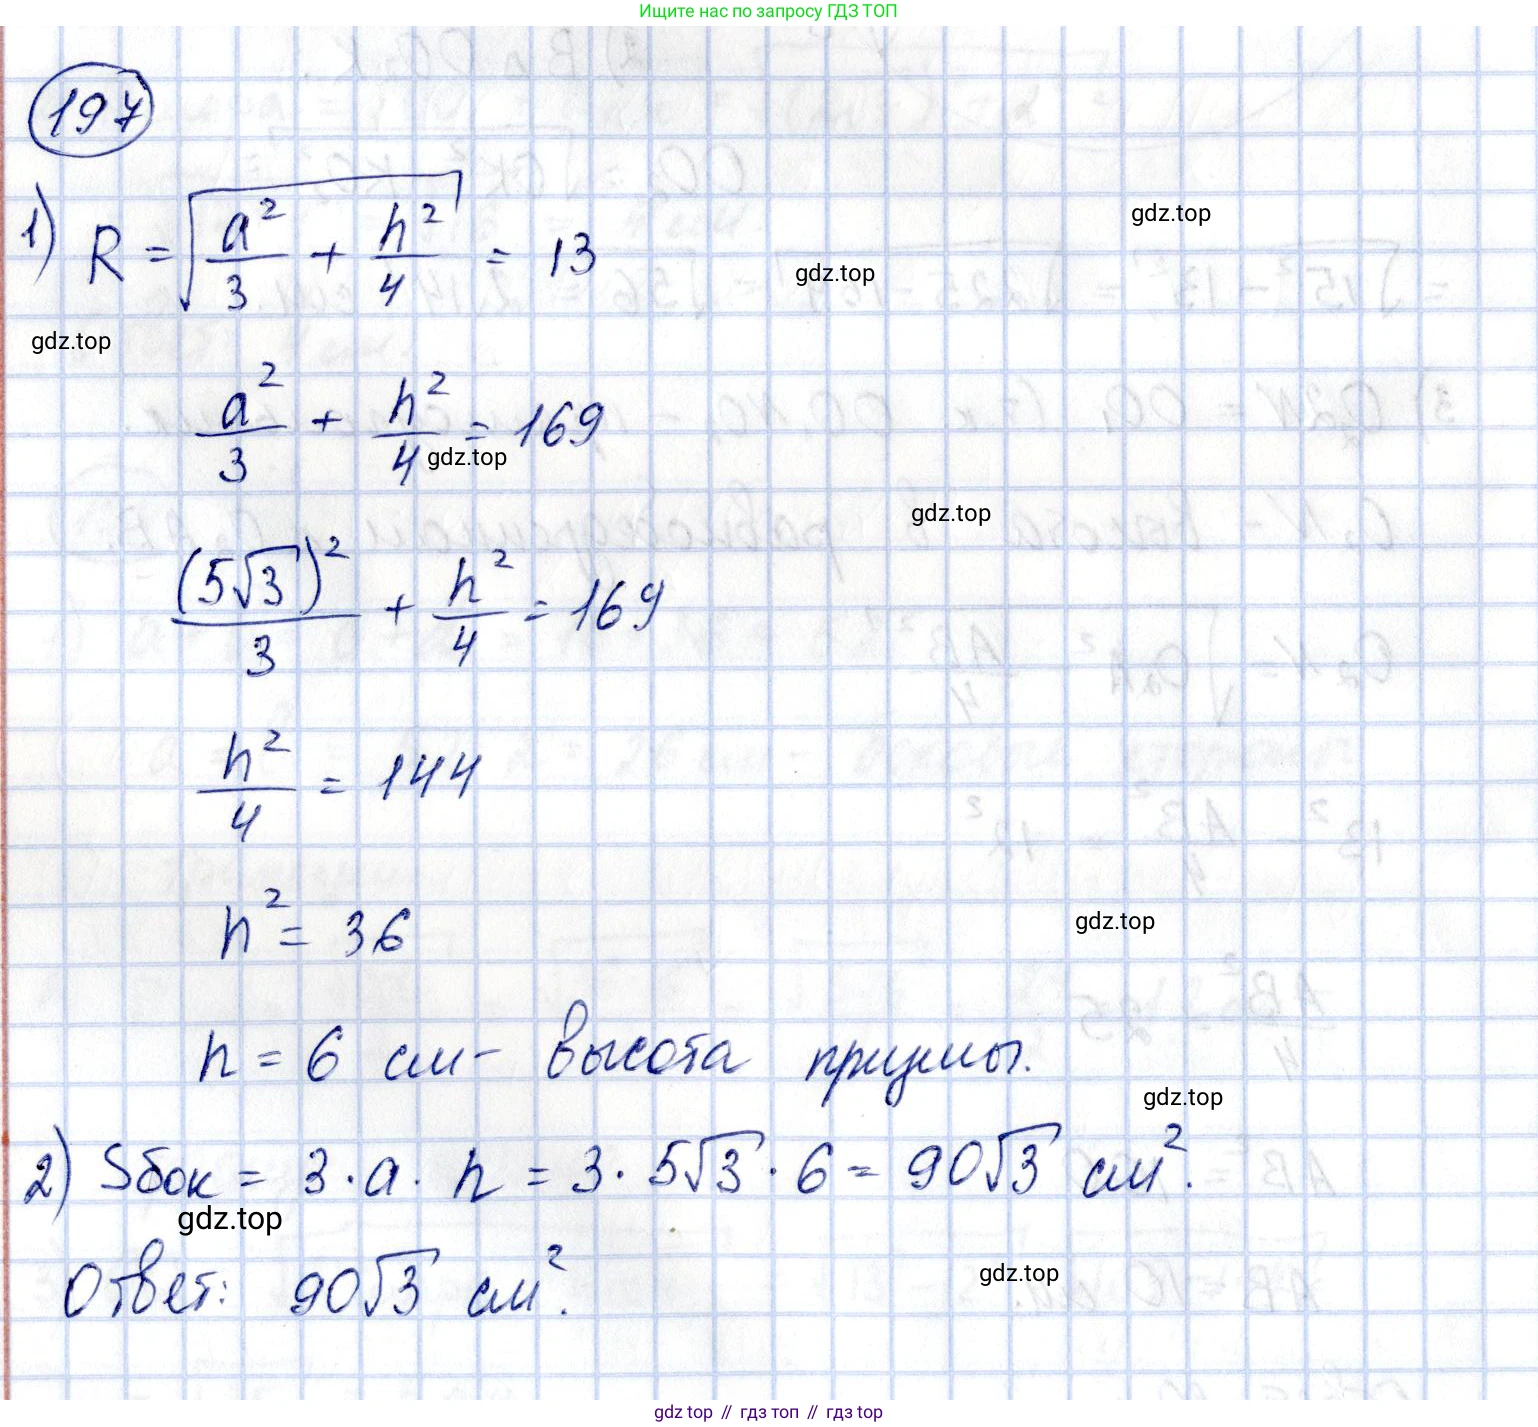 Ищите нас по запросу ГДЗ ТОП
197
1) R = √(a²/3 + h²/4) = 13
gdz.top
gdz.top
gdz.top
a²/3 + h²/4 = 169
gdz.top
gdz.top
(5√3)²/3 + h²/4 = 169
h²/4 = 144
h² = 36
gdz.top
h = 6 см - высота призмы.
gdz.top
2) Sбок = 3 · a · h = 3 · 5√3 · 6 = 90√3 см².
gdz.top
Ответ: 90√3 см².
gdz.top
gdz top // гдз топ // гдз top